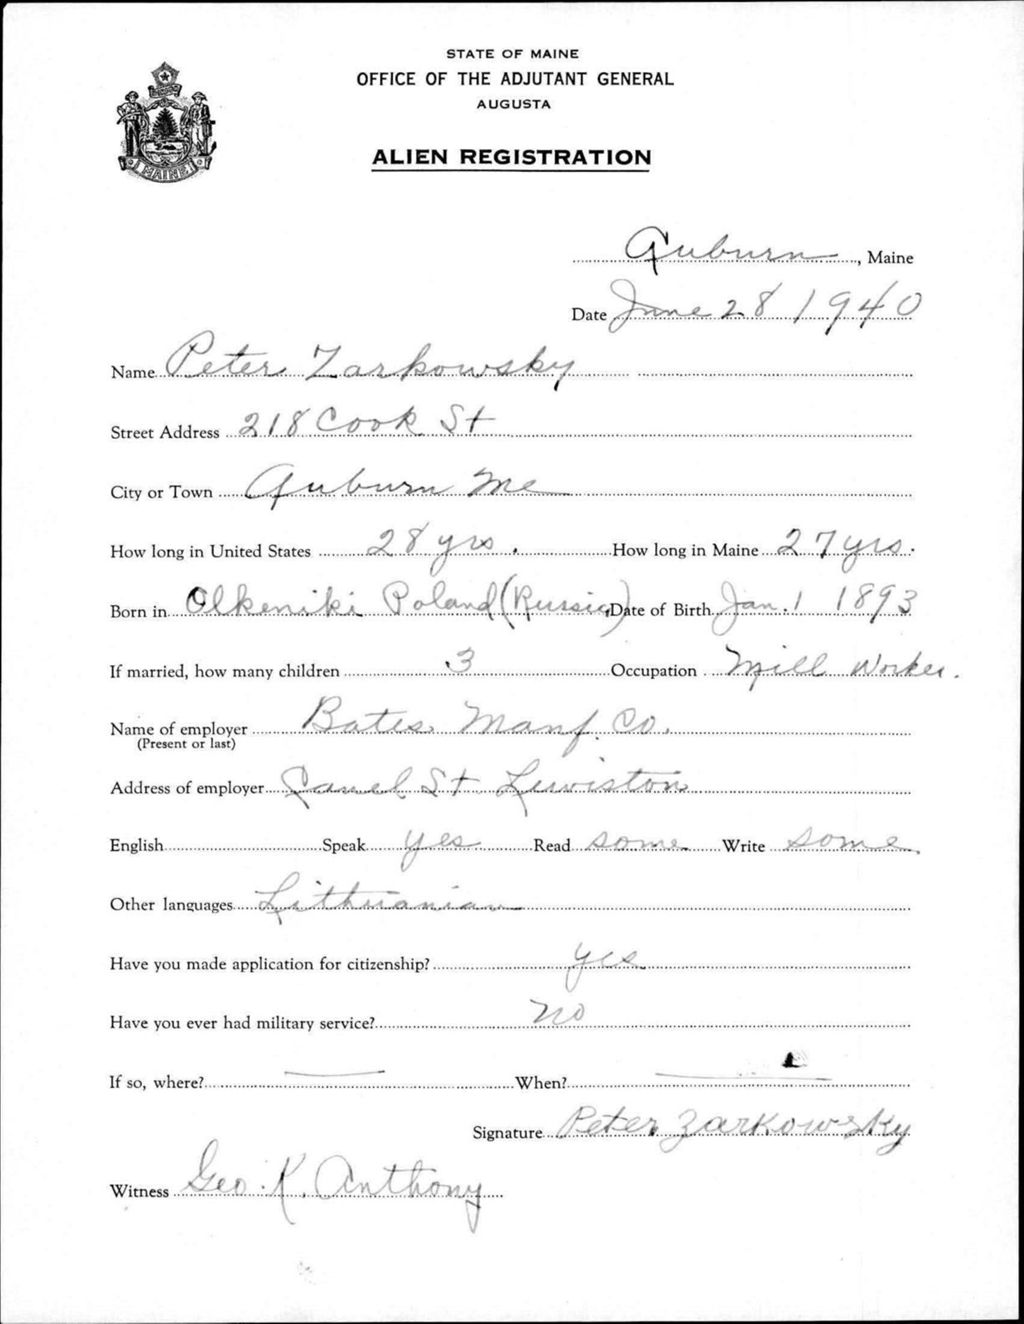 STATE OF MAINE
OFFICE OF THE ADJUTANT GENERAL
AUGUSTA
ALIEN REGISTRATION
MAINE
Auburn, Maine
Date June 28 1940
Name Peter Zarkowsky
Street Address 218 Cook St
City or Town Auburn Me
How long in United States 28 yrs. How long in Maine 27 yrs.
Born in Olkeniki Poland (Russia) Date of Birth Jan. 1 1893
If married, how many children 3 Occupation Mill Worker.
Name of employer Bates Manf. Co.
(Present or last)
Address of employer Canel St Lewiston
English Speak yes Read some Write some
Other languages Lithuanian
Have you made application for citizenship? yes
Have you ever had military service? No
If so, where? When?
Signature Peter Zarkowsky
Witness Geo. K. Anthony